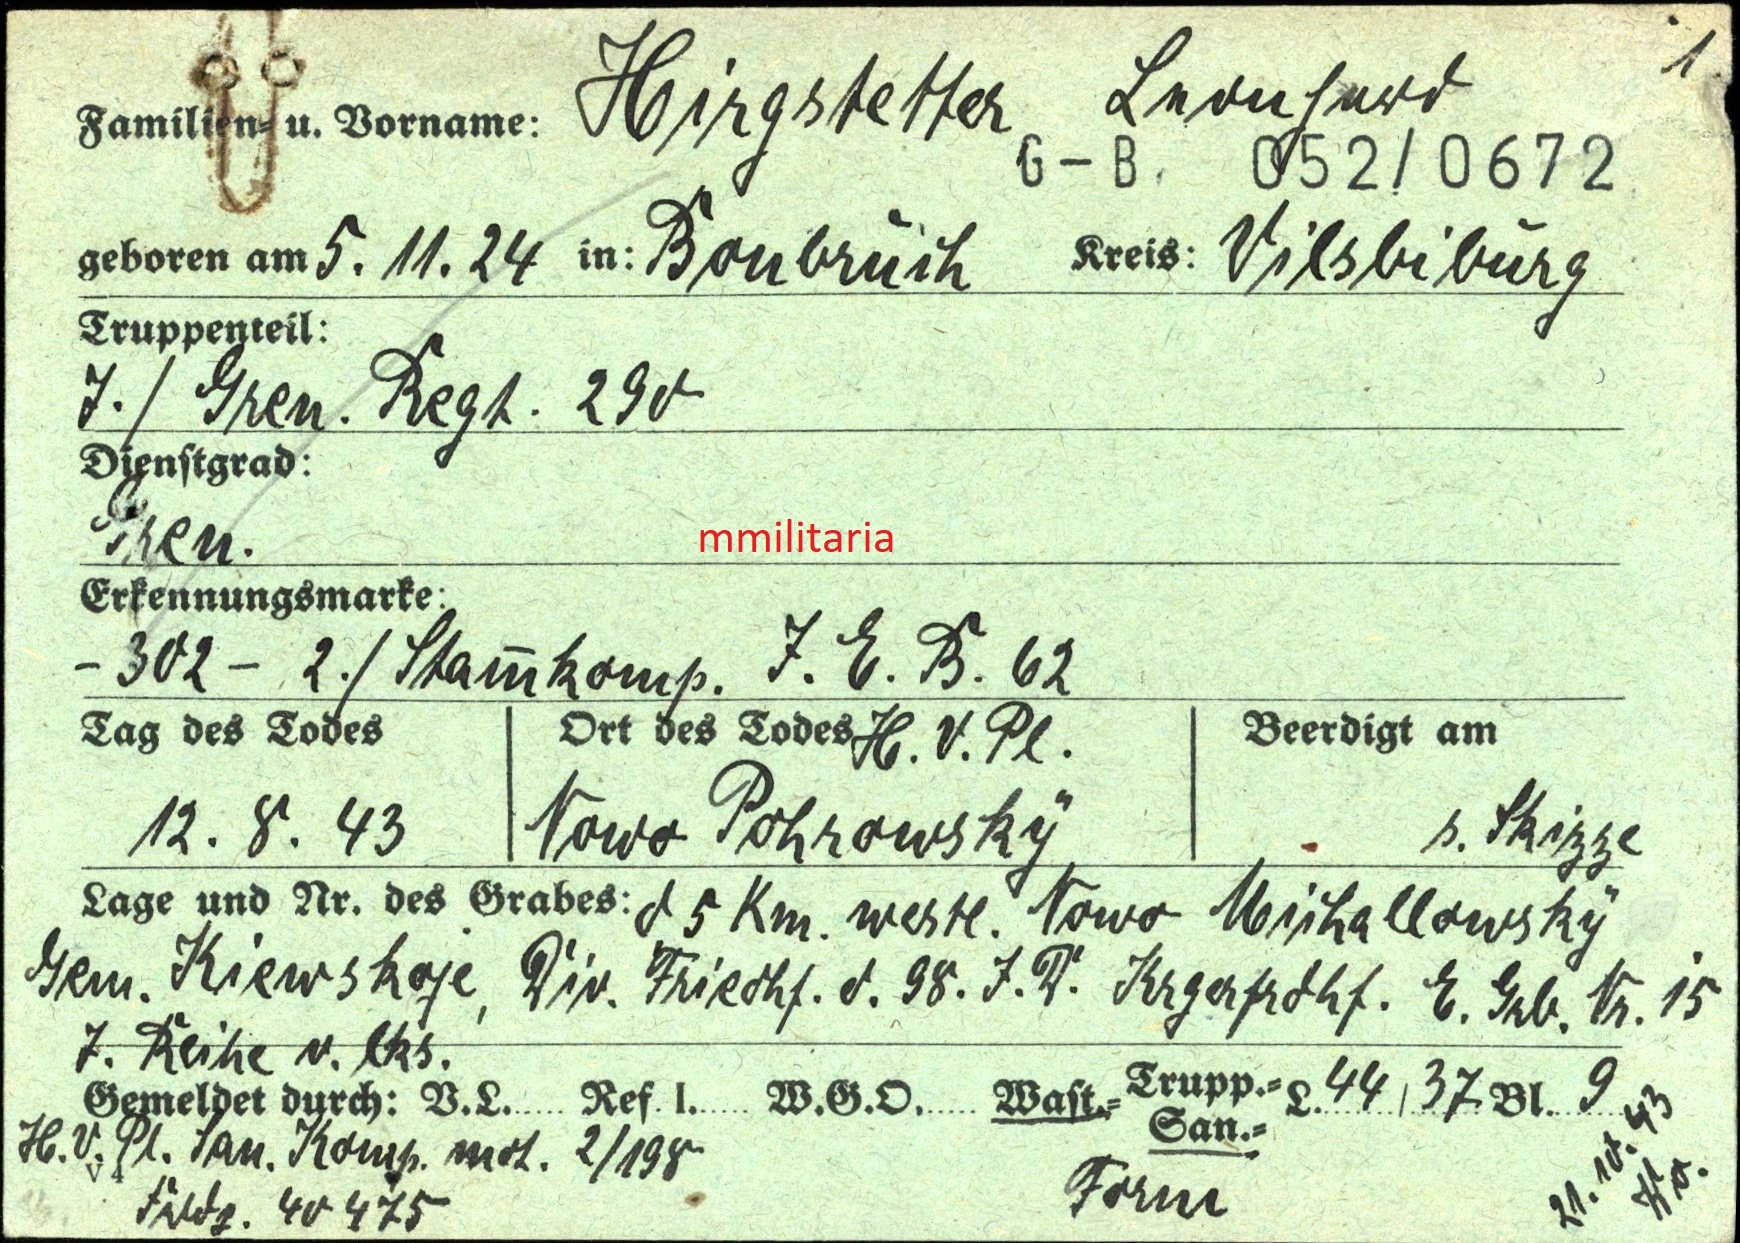 1.
Familien- u. Vorname: Hirgstetter Leonhard
G-B. 052/0672
geboren am 5. 11. 24 in: Bonbruch Kreis: Vilsbiburg
Truppenteil:
7./ Gren. Regt. 290
Dienstgrad:
Gren.
mmilitaria
Erkennungsmarke:
-302- 2./ Stam̅komp. J. E. B. 62
Tag des Todes Ort des Todes H. V. Pl. Beerdigt am
12. 8. 43 Nowo Pokrowskÿ s. Skizze
Lage und Nr. des Grabes: 5 Km. westl. Nowo Michallowskÿ
Gem. Kiewskoje, Div. Friedhf. d. 98. J. D. Krgerfrdhf. E. Grb. Nr. 15
7. Reihe v. lks.
Gemeldet durch: V.L. Ref. I. W.G.O. Wast.- Trupp.- L. 44 / 37 Bl. 9
San.-
H. V. Pl. San. Komp. mot. 2/198
Feldp. 40475
Form
21. 10. 43